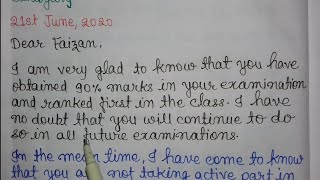 21st June, 2020
Dear Faizan,
I am very glad to know that you have
obtained 90% marks in your examination
and ranked first in the class. I have
no doubt that you will continue to do
so in all future examinations.
In the mean time, I have come to know
that you are not taking active part in